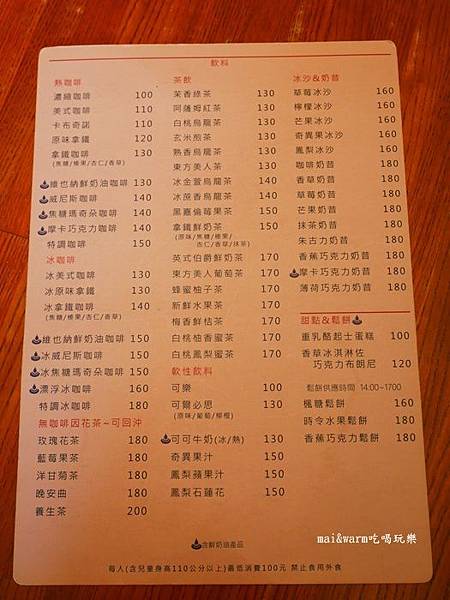 飲料
熱咖啡
濃縮咖啡 100
美式咖啡 110
卡布奇諾 110
原味拿鐵 120
拿鐵咖啡 130
(焦糖/榛果/杏仁/香草)
維也納鮮奶油咖啡 130
威尼斯咖啡 140
焦糖瑪奇朵咖啡 140
摩卡巧克力咖啡 140
特調咖啡 150
冰咖啡
冰美式咖啡 130
冰原味拿鐵 130
冰拿鐵咖啡 140
(焦糖/榛果/杏仁/香草)
冰維也納鮮奶油咖啡 150
冰威尼斯咖啡 150
冰焦糖瑪奇朵咖啡 150
漂浮冰咖啡 160
特調冰咖啡 180
無咖啡因花茶~可回沖
玫瑰花茶 180
藍莓果茶 180
洋甘菊茶 180
晚安曲 180
養生茶 200
茶飲
茉香綠茶 130
阿薩姆紅茶 130
白桃烏龍茶 130
玄米煎茶 130
熟香烏龍茶 130
東方美人茶 130
冰金萱烏龍茶 140
冰蔗香烏龍茶 150
黑嘉倫莓果茶 150
拿鐵鮮奶茶 150
(原味/焦糖/榛果/
杏仁/香草/抹茶)
英式伯爵鮮奶茶 170
東方美人葡萄茶 170
蜂蜜柚子茶 170
新鮮水果茶 170
梅香鮮桔茶 170
白桃柚香蜜茶 170
白桃鳳梨蜜茶 170
軟性飲料
可樂 100
可爾必思 130
(原味/葡萄/柳橙)
可可牛奶(冰/熱) 130
奇異果汁 150
鳳梨蘋果汁 150
鳳梨石蓮花 150
冰沙&奶昔
草莓冰沙 160
檸檬冰沙 160
芒果冰沙 160
奇異果冰沙 160
鳳梨冰沙 160
咖啡奶昔 180
香草奶昔 180
草莓奶昔 180
芒果奶昔 180
抹茶奶昔 180
朱古力奶昔 180
香蕉巧克力奶昔 180
摩卡巧克力奶昔 180
薄荷巧克力奶昔 180
甜點&鬆餅
重乳酪起士蛋糕 100
香草冰淇淋佐
巧克力布朗尼 120
鬆餅供應時間 14:00~1700
楓糖鬆餅 160
時令水果鬆餅 180
香蕉巧克力鬆餅 180
含鮮奶油產品
每人(含兒童身高110公分以上)最低消費100元 禁止食用外食
mai&warm吃喝玩樂